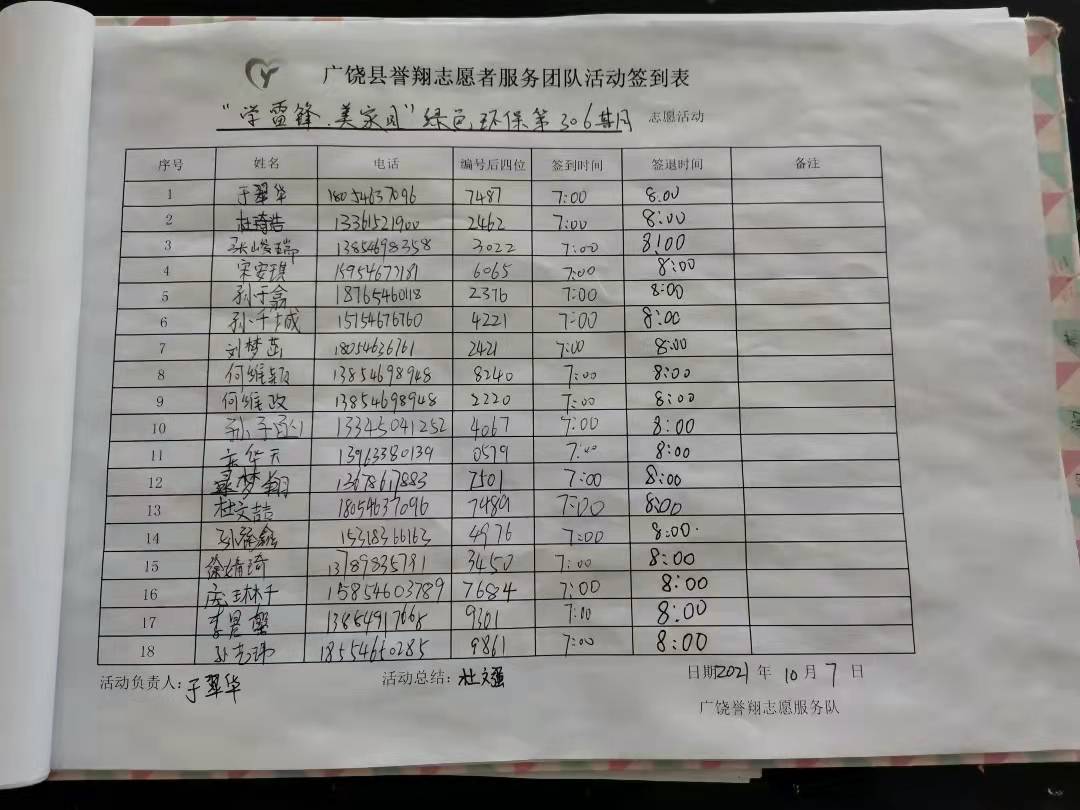 广饶县誉翔志愿者服务团队活动签到表
"学雷锋.美家园"绿色环保第306期 志愿活动
序号 姓名 电话 编号后四位 签到时间 签退时间 备注
1 于翠华 18054637096 7487 7:00 8:00
2 杜琦浩 13361521900 2462 7:00 8:00
3 张峻瑞 13854698358 3022 7:00 8:00
4 宋安琪 15954673181 6065 7:00 8:00
5 孙于淼 18765460118 2376 7:00 8:00
6 孙千城 15154676760 4221 7:00 8:00
7 刘梦茁 18054636761 2421 7:00 8:00
8 何维颖 13854698948 8240 7:00 8:00
9 何维政 13854698948 2220 7:00 8:00
10 孙子函 13345041252 4067 7:00 8:00
11 华天 13963380139 0579 7:00 8:00
12 梦翔 13678617883 7501 7:00 8:00
13 杜文喆 18054637096 7489 7:00 8:00
14 孙 鑫 15318366163 4976 7:00 8:00
15 徐婧琦 13789835731 3450 7:00 8:00
16 庞琳千 15854603789 7684 7:00 8:00
17 李 9301 7:00 8:00
18 孙 玮 18554660285 9861 7:00 8:00
活动负责人:于翠华 活动总结:杜文强 日期2021年10月7日
广饶誉翔志愿服务队